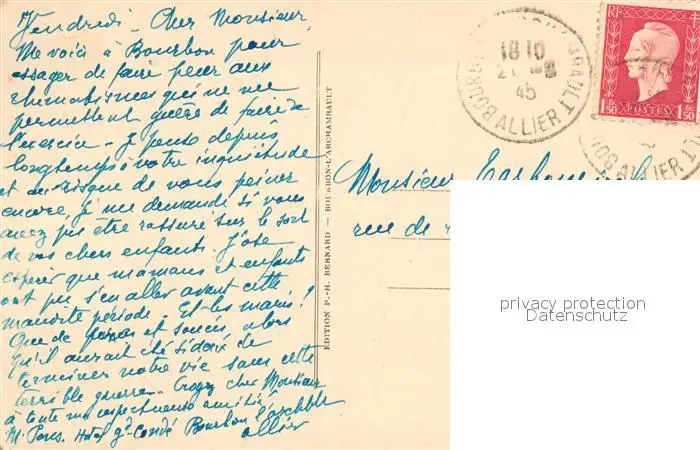 Vendredi - Cher Monsieur,
Me voici à Bourbon pour
essayer de faire peur aux
rhumatismes qui ne me
permettent guère de faire de
l'exercice - Je pense depuis
longtemps à votre inquiétude
et au risque de vous peiner
encore, je me demande si vous
avez pu être rassuré sur le sort
de vos chers enfants. J'ose
espérer que mamans et enfants
ont pu s'en aller avant cette
maudite période. Et les maris!
Que de et soucis, alors
qu'il aurait été si doux de
terminer notre vie sans cette
terrible guerre. Croyez cher Monsieur
à toute ma respectueuse amitié
M. Hotel gd Condé Bourbon l'Archblt
allier
EDITION P.-H. BERNARD — BOURBON-L'ARCHAMBAULT
BOURBON L'ARCHAMBAULT
18 10
45
ALLIER
RF
1F50 POSTES 1F50
ALLIER
Monsieur
rue de
privacy protection
Datenschutz